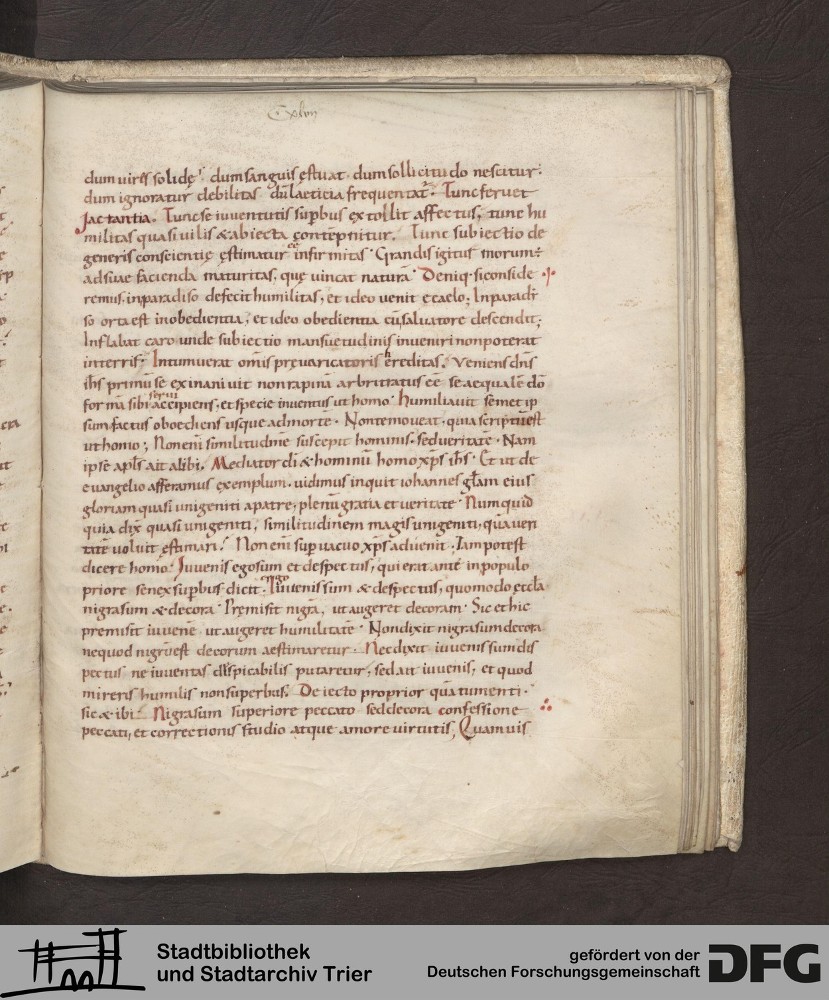 Cxlvii
dum uires solidę! dum sanguis ęstuat · dum sollicitudo nescitur ·
dum ignoratur debilitas dū laeticia frequentat᷑ · Tunc feruet
Jactantia. Tunc se iuuentutis supbus extollit affectus, tunc hu
militas quasi uilis & abiecta contempnitur. Tunc subiectio de
generis conscientię ęstimatur infirmitas · Grandis igitur morum
ad suae facienda maturitas, quę uincat naturā · Deniq· si conside
remus, in paradiso defecit humilitas, et ideo uenit e caelo; In paradi
so orta est inobedientia, et ideo obedientia cū saluatore descendit;
Inflabat caro unde subiectio mansuetudinis inueniri non poterat
in terris; Intumuerat om̄is pręuaricatoris hereditas. Veniens dn̄s
ih̄s primū se exinaniuit non rapinā arbitratus eē se aequalē dō
formā serui sibi accipiens, et specie inuentus ut homo · humiliauit semet ip
sum factus oboediens usque ad mortē · Non te moueat · quia scriptū est
ut homo; Non enī similitudinē suscepit hominis, sed ueritatē · Nam
ipse apl̄s ait alibi. Mediator dī & hominū homo xp̄s ih̄s · Et ut de
euangelio afferamus exemplum · uidimus inquit iohannes gl̄am eius
gloriam quasi unigeniti a patre, plenū gratia et ueritate · Numquid
quia dix̄ quasi unigeniti, similitudinem magis unigeniti, quā ueri
tatē uoluit ęstimari? Non enī supuacuo xp̄s aduenit · Iam potest
dicere homo · Juuenis ego sum et despectus, qui erat ante in populo
priore senex supbus dicit · Iuuenis sum & despectus, quomodo eccl̄a
nigra sum & decora · Pręmisit nigrā, ut augeret decoram · Sic et hic
premisit iuuenē ut augeret humilitatē · Non dixit nigra sum decora
ne quod nigrū est decorum aestimaretur · Nec dixit iuuenis sum dis
pectus ne iuuentas dispicabilis putaretur, sed ait iuuenis, et quod
mireris humilis non superbus. Deiecto proprior quā tumenti ·
sic & ibi · Nigra sum superiore peccato sed decora confessione
peccati, et correctionis studio atque amore uirtutis, Quamuis
Stadtbibliothek
und Stadtarchiv Trier
gefördert von der
Deutschen Forschungsgemeinschaft
DFG